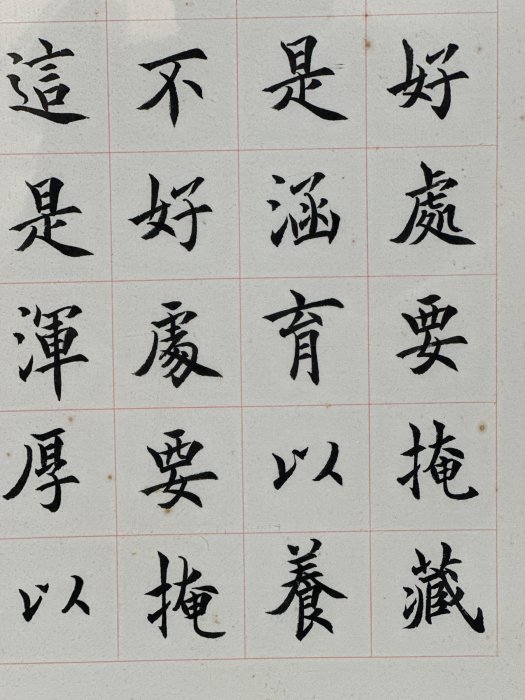 好處要掩藏
是涵育以養
不好處要掩
這是渾厚以